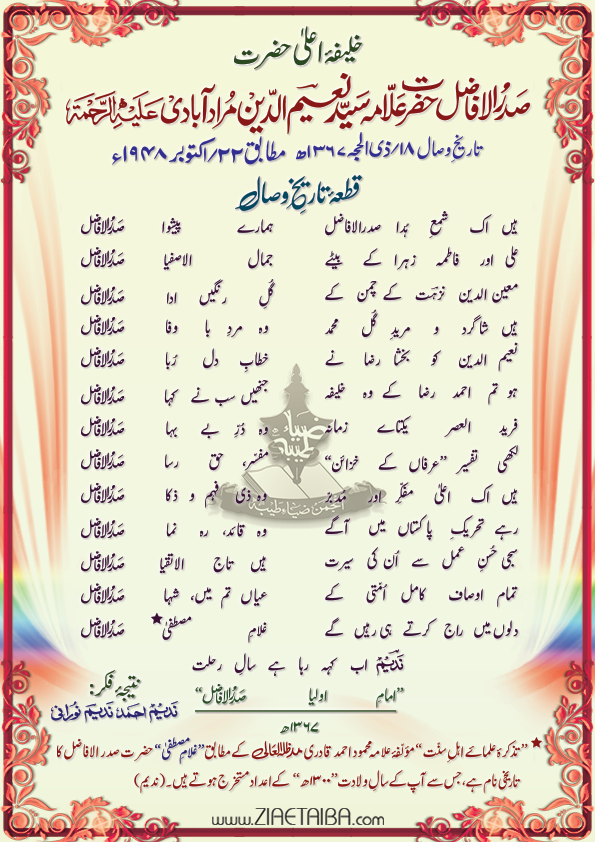 خلیفۂ اعلیٰ حضرت
صدرُ الافاضل حضرت علّامہ سیّد نعیم الدین مُراد آبادی عَلَیْہِ الرَّحْمَۃ
تاریخِ وصال ۱۸/ذی الحجہ ۱۳۶۷ھ مطابق ۲۲/اکتوبر ۱۹۴۸ء
قطعۂ تاریخِ وصال
ہیں اک شمعِ ہُدا صدر الافاضل ہمارے پیشوا صدرُ الافاضل
علی اور فاطمہ زہرا کے بیٹے جمال الاصفیا صدرُ الافاضل
معین الدین نزہت کے چمن کے گُلِ رنگیں ادا صدرُ الافاضل
ہیں شاگرد و مریدِ گُل محمد وہ مردِ با وفا صدرُ الافاضل
نعیم الدین کو بخشا رضا نے خطابِ دل رُبا صدرُ الافاضل
ہو تم احمد رضا کے وہ خلیفہ جنھیں سب نے کہا صدرُ الافاضل
فرید العصر یکتاے زمانہ وہ دُرِّ بے بہا صدرُ الافاضل
لکھی تفسیر ”عرفاں کے خزائن“ مفسّرِ حق رسا صدرُ الافاضل
ہیں اک اعلیٰ مفکّر اور مُدبّر وہ ذی فہم و ذکا صدرُ الافاضل
رہے تحریکِ پاکستاں میں آگے وہ قائد، رہ نما صدرُ الافاضل
سجی حُسنِ عمل سے اُن کی سیرت ہیں تاج الاتقیا صدرُ الافاضل
تمام اوصاف کامل اُمّتی کے عیاں تم میں، شہا صدرُ الافاضل
دلوں میں راج کرتے ہی رہیں گے غلامِ مصطفیٰ★ صدرُ الافاضل
ندیمؔ اب کہہ رہا ہے سالِ رحلت
”امامِ اولیا صدرُ الافاضل“
۱۳۶۷ھ
نتیجۂ فکر:
ندیم احمد ندیم نورانی
ضیاء طیبہ
انجمن ضیاء طیبہ
★ ”تذکرۂ علمائے اہلِ سنّت“ مؤلّفۂ علامہ محمود احمد قادری مدظلہ العالی کے مطابق ”غلامِ مصطفیٰ“ حضرت صدر الافاضل کا
تاریخی نام ہے، جس سے آپ کے سالِ ولادت ”۱۳۰۰ھ“ کے اعداد مستخرج ہوتے ہیں۔ (ندیم)
www.ZIAETAIBA.com